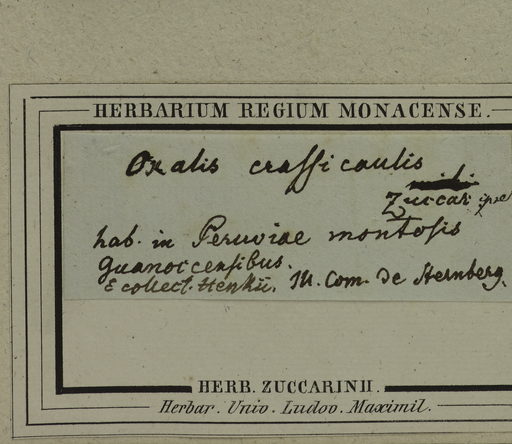 HERBARIUM REGIUM MONACENSE.
Oxalis crassicaulis
Zuccar ipse
hab. in Peruviae montosis
Guanoccensibus.
E collect. Henkii. Ill. Com. de Sternberg.
HERB. ZUCCARINII.
Herbar. Univ. Ludov. Maximil.